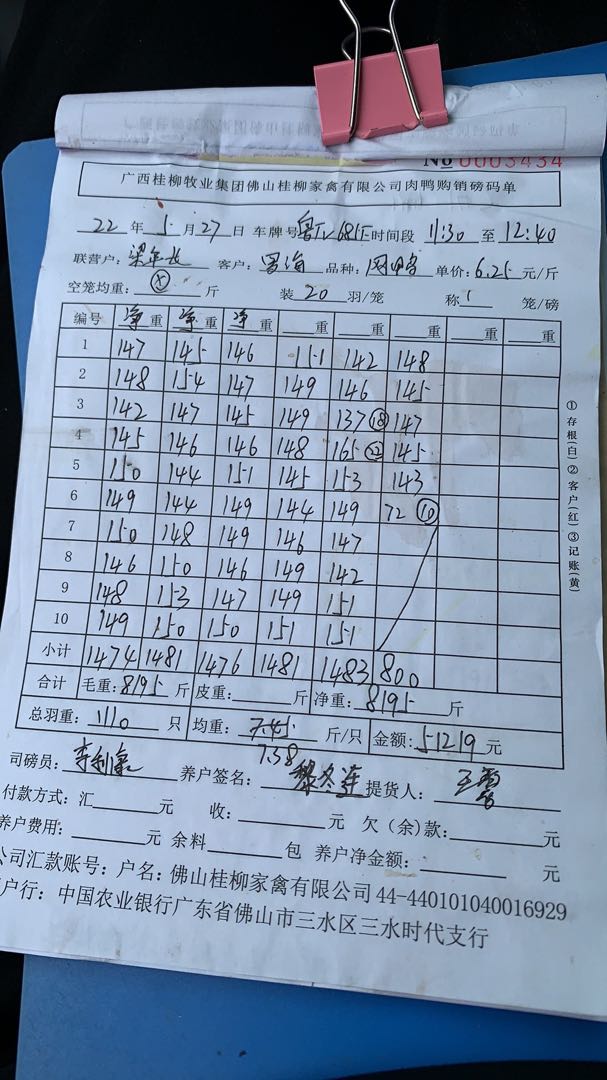 No 0003434
广西桂柳牧业集团佛山桂柳家禽有限公司肉鸭购销磅码单
22 年 5 月 27 日 车牌号 时间段 11:30 至 12:40
联营户: 客户: 品种: 单价: 6.25 元/斤
空笼均重: ⓧ 斤 装 20 羽/笼 称 1 笼/磅
编号 净重 净重 净重 重 重 重 重 重
1 147 145 146 151 142 148
2 148 154 147 149 146 145
3 142 147 145 149 137 ⑱ 147
4 145 146 146 148 165 ㉒ 145
5 150 144 151 145 153 143
6 149 144 149 144 149 72 ⑩
7 150 148 149 146 147
8 146 150 146 149 142
9 148 153 147 149 151
10 149 150 150 151 151
小计 1474 1481 1476 1481 1483 800
合计 毛重: 8195 斤 皮重: 斤 净重: 8195 斤
总羽重: 1110 只 均重: 7.45 斤/只 金额: 51219 元
7.38
司磅员: 养户签名: 黎冬莲 提货人:
付款方式: 汇 元 收: 元 欠(余)款: 元
养户费用: 元 余料 包 养户净金额: 元
公司汇款账号: 户名: 佛山桂柳家禽有限公司 44-440101040016929
户行: 中国农业银行广东省佛山市三水区三水时代支行
①存根(白)②客户(红)③记账(黄)